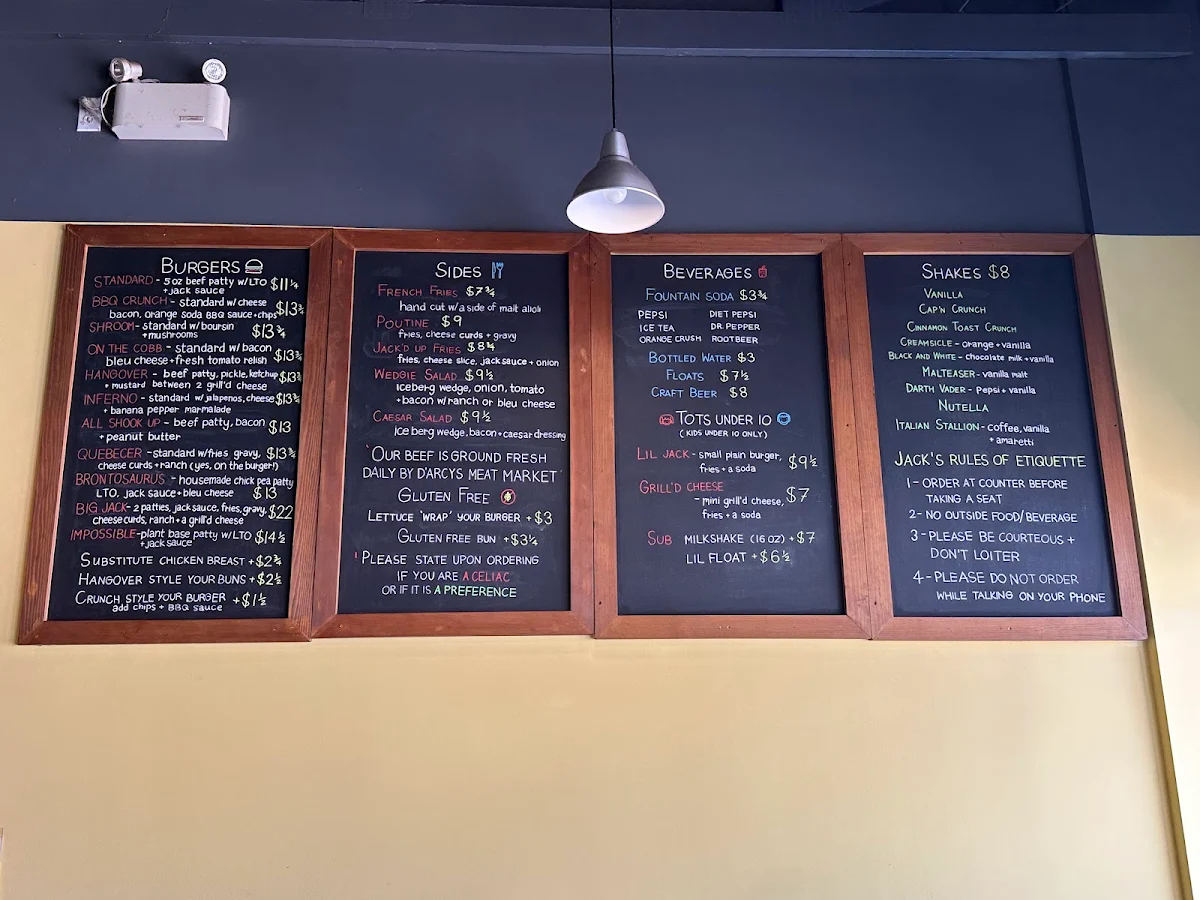 BURGERS
STANDARD - 5oz beef patty w/LTO $11 ¼
+ jack sauce
BBQ CRUNCH - standard w/ cheese
bacon, orange soda BBQ sauce + chips $13 ¾
SHROOM - standard w/ boursin
+ mushrooms $13 ¾
ON THE COBB - standard w/ bacon
bleu cheese + fresh tomato relish $13 ¾
HANGOVER - beef patty, pickle, ketchup $13 ¾
+ mustard between 2 grill'd cheese
INFERNO - standard w/ jalapenos, cheese $13 ¾
+ banana pepper marmalade
ALL SHOOK UP - beef patty, bacon $13
+ peanut butter
QUEBECER - standard w/fries gravy, $13 ¾
cheese curds + ranch (yes, on the burger!)
BRONTOSAURUS - housemade chick pea patty
LTO, jack sauce + bleu cheese $13
BIG JACK - 2 patties, jack sauce, fries, gravy, $22
cheese curds, ranch + a grill'd cheese
IMPOSSIBLE - plant base patty w/LTO $14 ½
+ jack sauce
SUBSTITUTE CHICKEN BREAST +$2 ¾
HANGOVER STYLE YOUR BUNS +$2 ½
CRUNCH STYLE YOUR BURGER +$1 ½
add chips + BBQ sauce
SIDES
FRENCH FRIES $7 ¾
hand cut w/a side of malt aioli
POUTINE $9
fries, cheese curds + gravy
JACK'D UP FRIES $8 ¾
fries, cheese slice, jack sauce + onion
WEDGIE SALAD $9 ½
iceberg wedge, onion, tomato
+ bacon w/ ranch or bleu cheese
CAESAR SALAD $9 ½
Ice berg wedge, bacon + caesar dressing
'OUR BEEF IS GROUND FRESH
DAILY BY D'ARCYS MEAT MARKET'
GLUTEN FREE
LETTUCE 'WRAP' YOUR BURGER +$3
GLUTEN FREE BUN +$3 ¼
'PLEASE STATE UPON ORDERING
IF YOU ARE A CELIAC
OR IF IT IS A PREFERENCE
BEVERAGES
FOUNTAIN SODA $3 ¾
PEPSI DIET PEPSI
ICE TEA DR. PEPPER
ORANGE CRUSH ROOTBEER
BOTTLED WATER $3
FLOATS $7 ½
CRAFT BEER $8
TOTS UNDER 10
(KIDS UNDER 10 ONLY)
LIL JACK - small plain burger,
fries + a soda $9 ½
GRILL'D CHEESE
- mini grill'd cheese, $7
fries + a soda
SUB MILKSHAKE (16 OZ) +$7
LIL FLOAT +$6 ½
SHAKES $8
VANILLA
CAP'N CRUNCH
CINNAMON TOAST CRUNCH
CREAMSICLE - orange + vanilla
BLACK AND WHITE - chocolate milk + vanilla
MALTEASER - vanilla malt
DARTH VADER - Pepsi + vanilla
NUTELLA
ITALIAN STALLION - coffee, vanilla
+ amaretti
JACK'S RULES OF ETIQUETTE
1 - ORDER AT COUNTER BEFORE
TAKING A SEAT
2 - NO OUTSIDE FOOD/BEVERAGE
3 - PLEASE BE COURTEOUS +
DON'T LOITER
4 - PLEASE DO NOT ORDER
WHILE TALKING ON YOUR PHONE